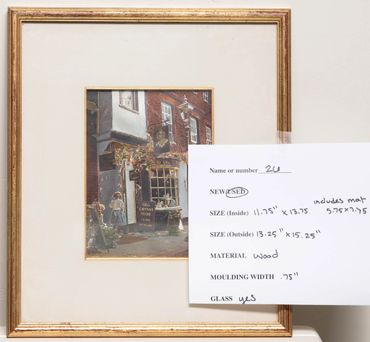 Name or number 26
NEW USED
includes mat
SIZE (Inside) 11.75" x 13.75 5.75x7.75
SIZE (Outside) 13.25" x 15.25"
MATERIAL Wood
MOULDING WIDTH .75"
GLASS yes